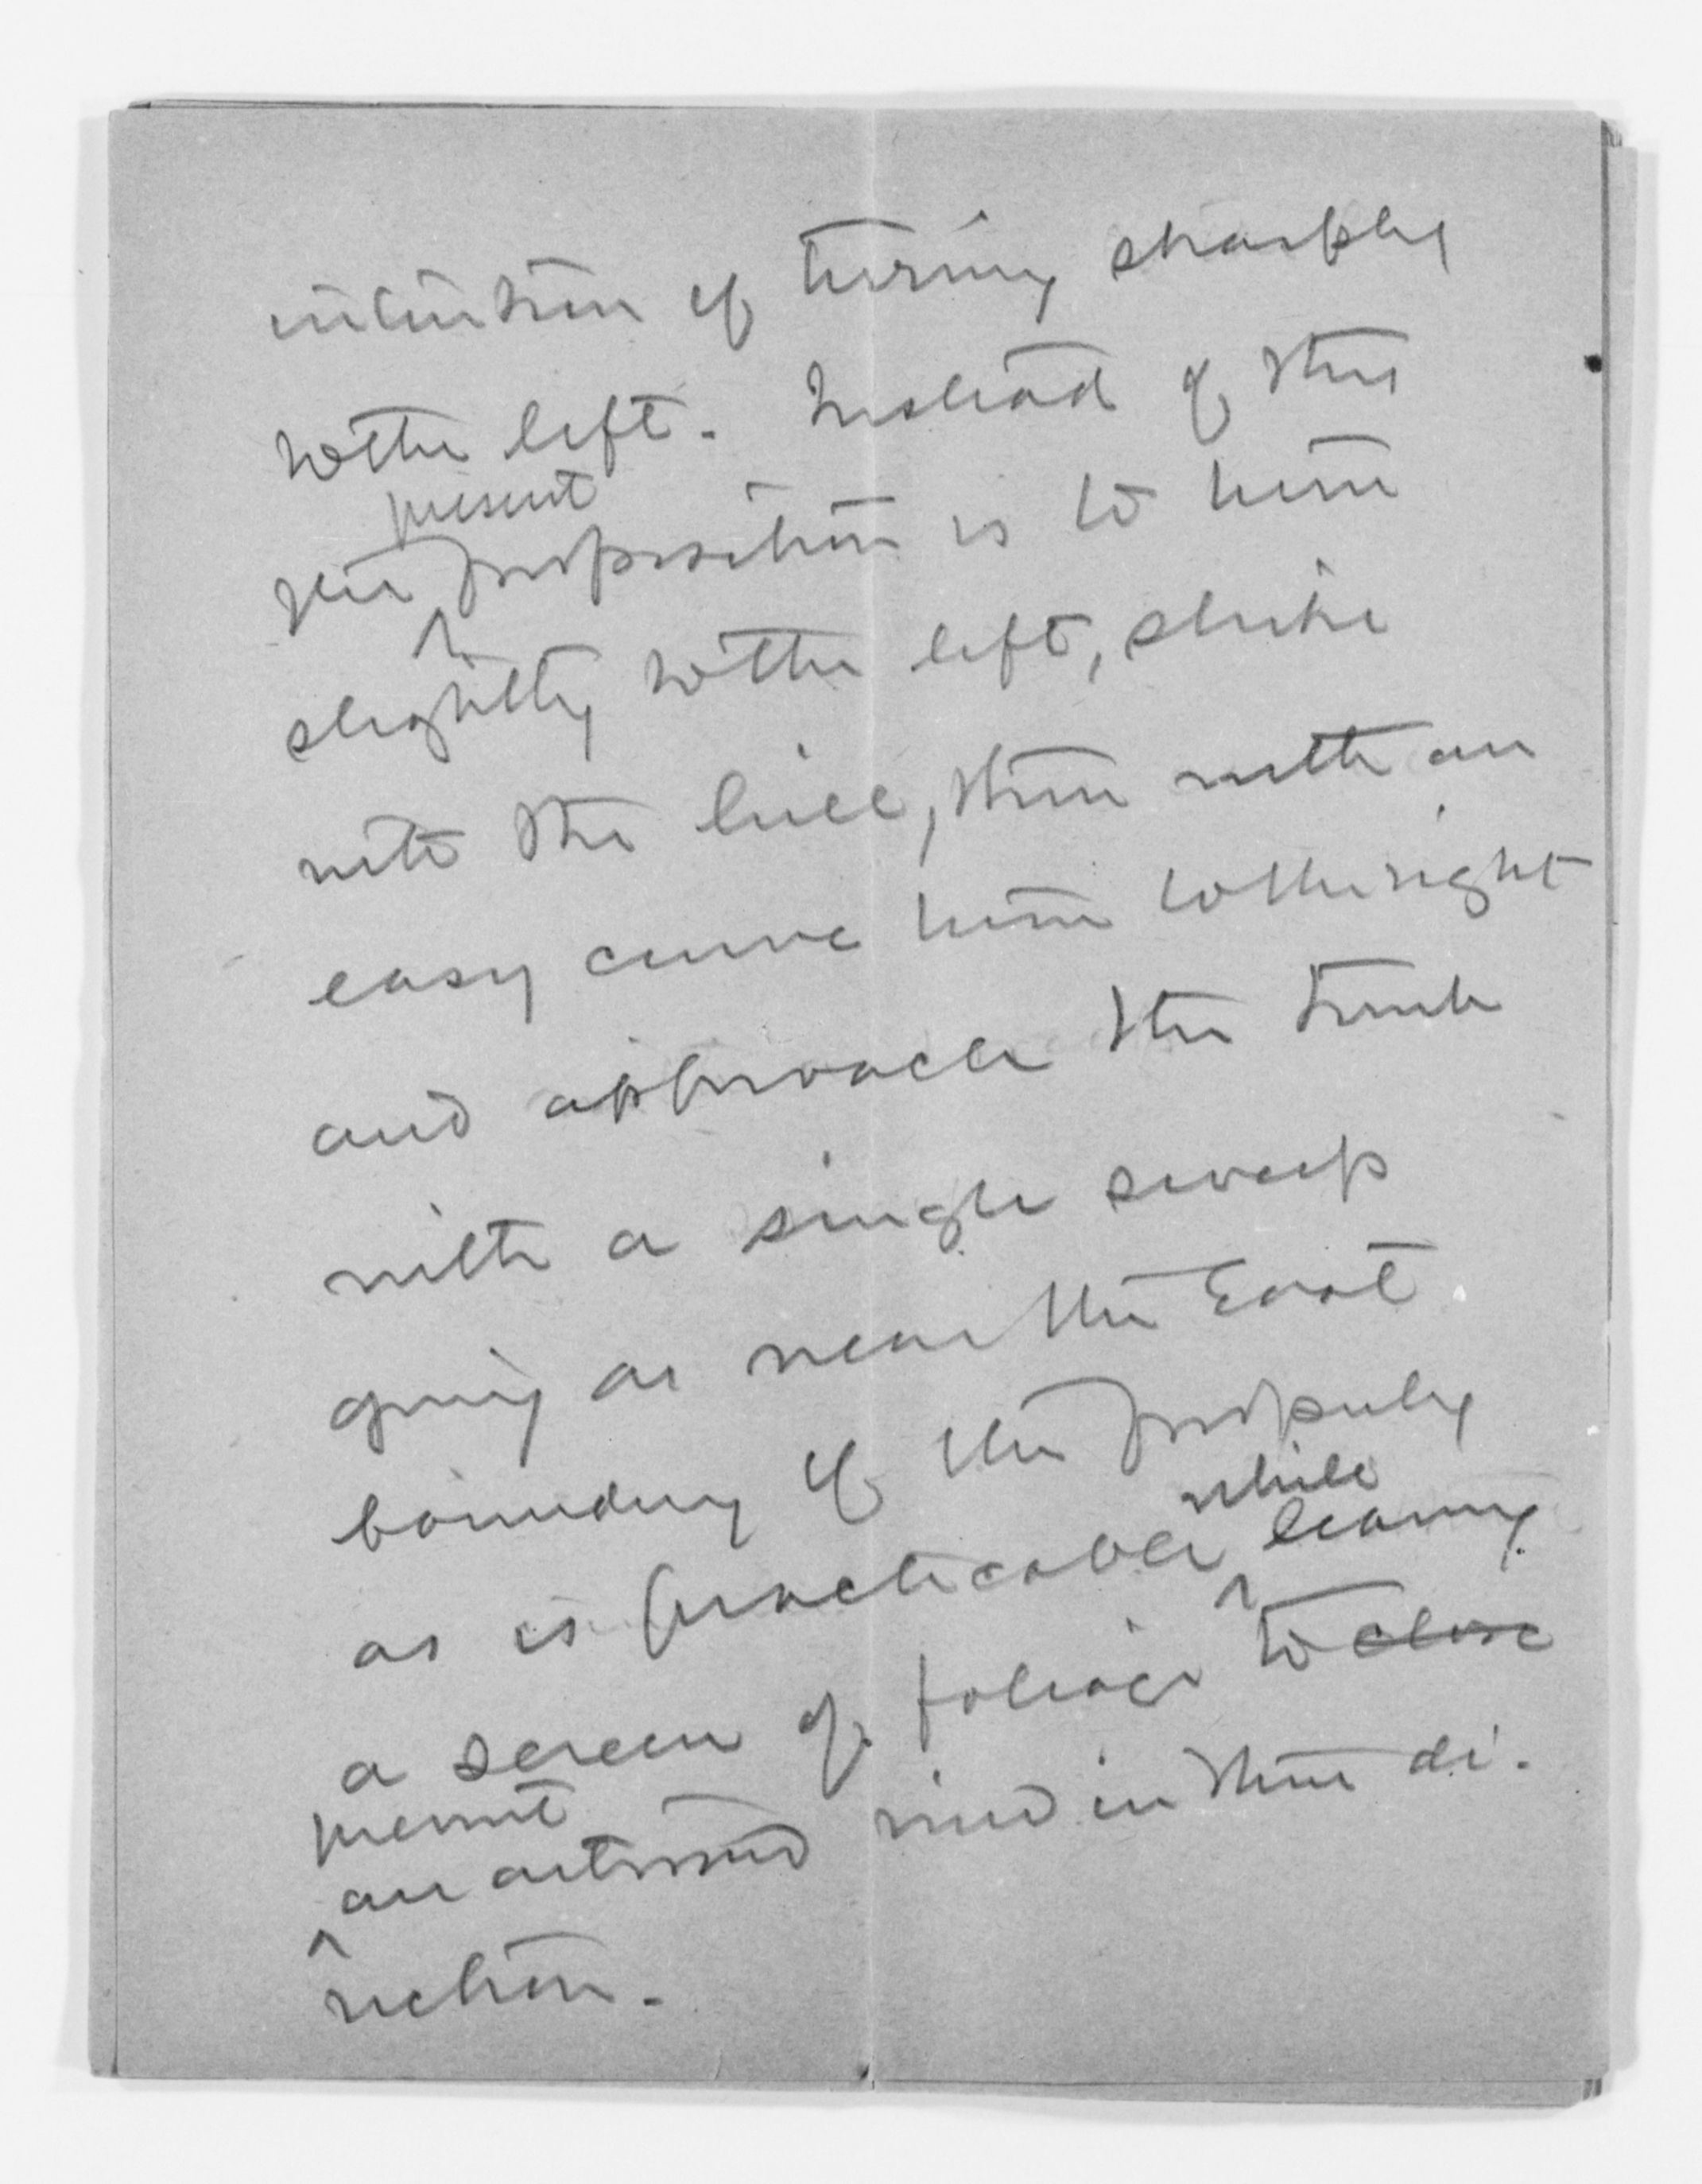 intention of turning sharply
to the left. Instead of this
present
the proposition is to turn
slightly to the left, strike
into the hill, then with an
easy curve turn to the right
and approach the tomb
with a single sweep
going as near the East
boundary of the property
while
as is practicable leaving
a screen of foliage to close
prevent
an outward view in that di-
rection.